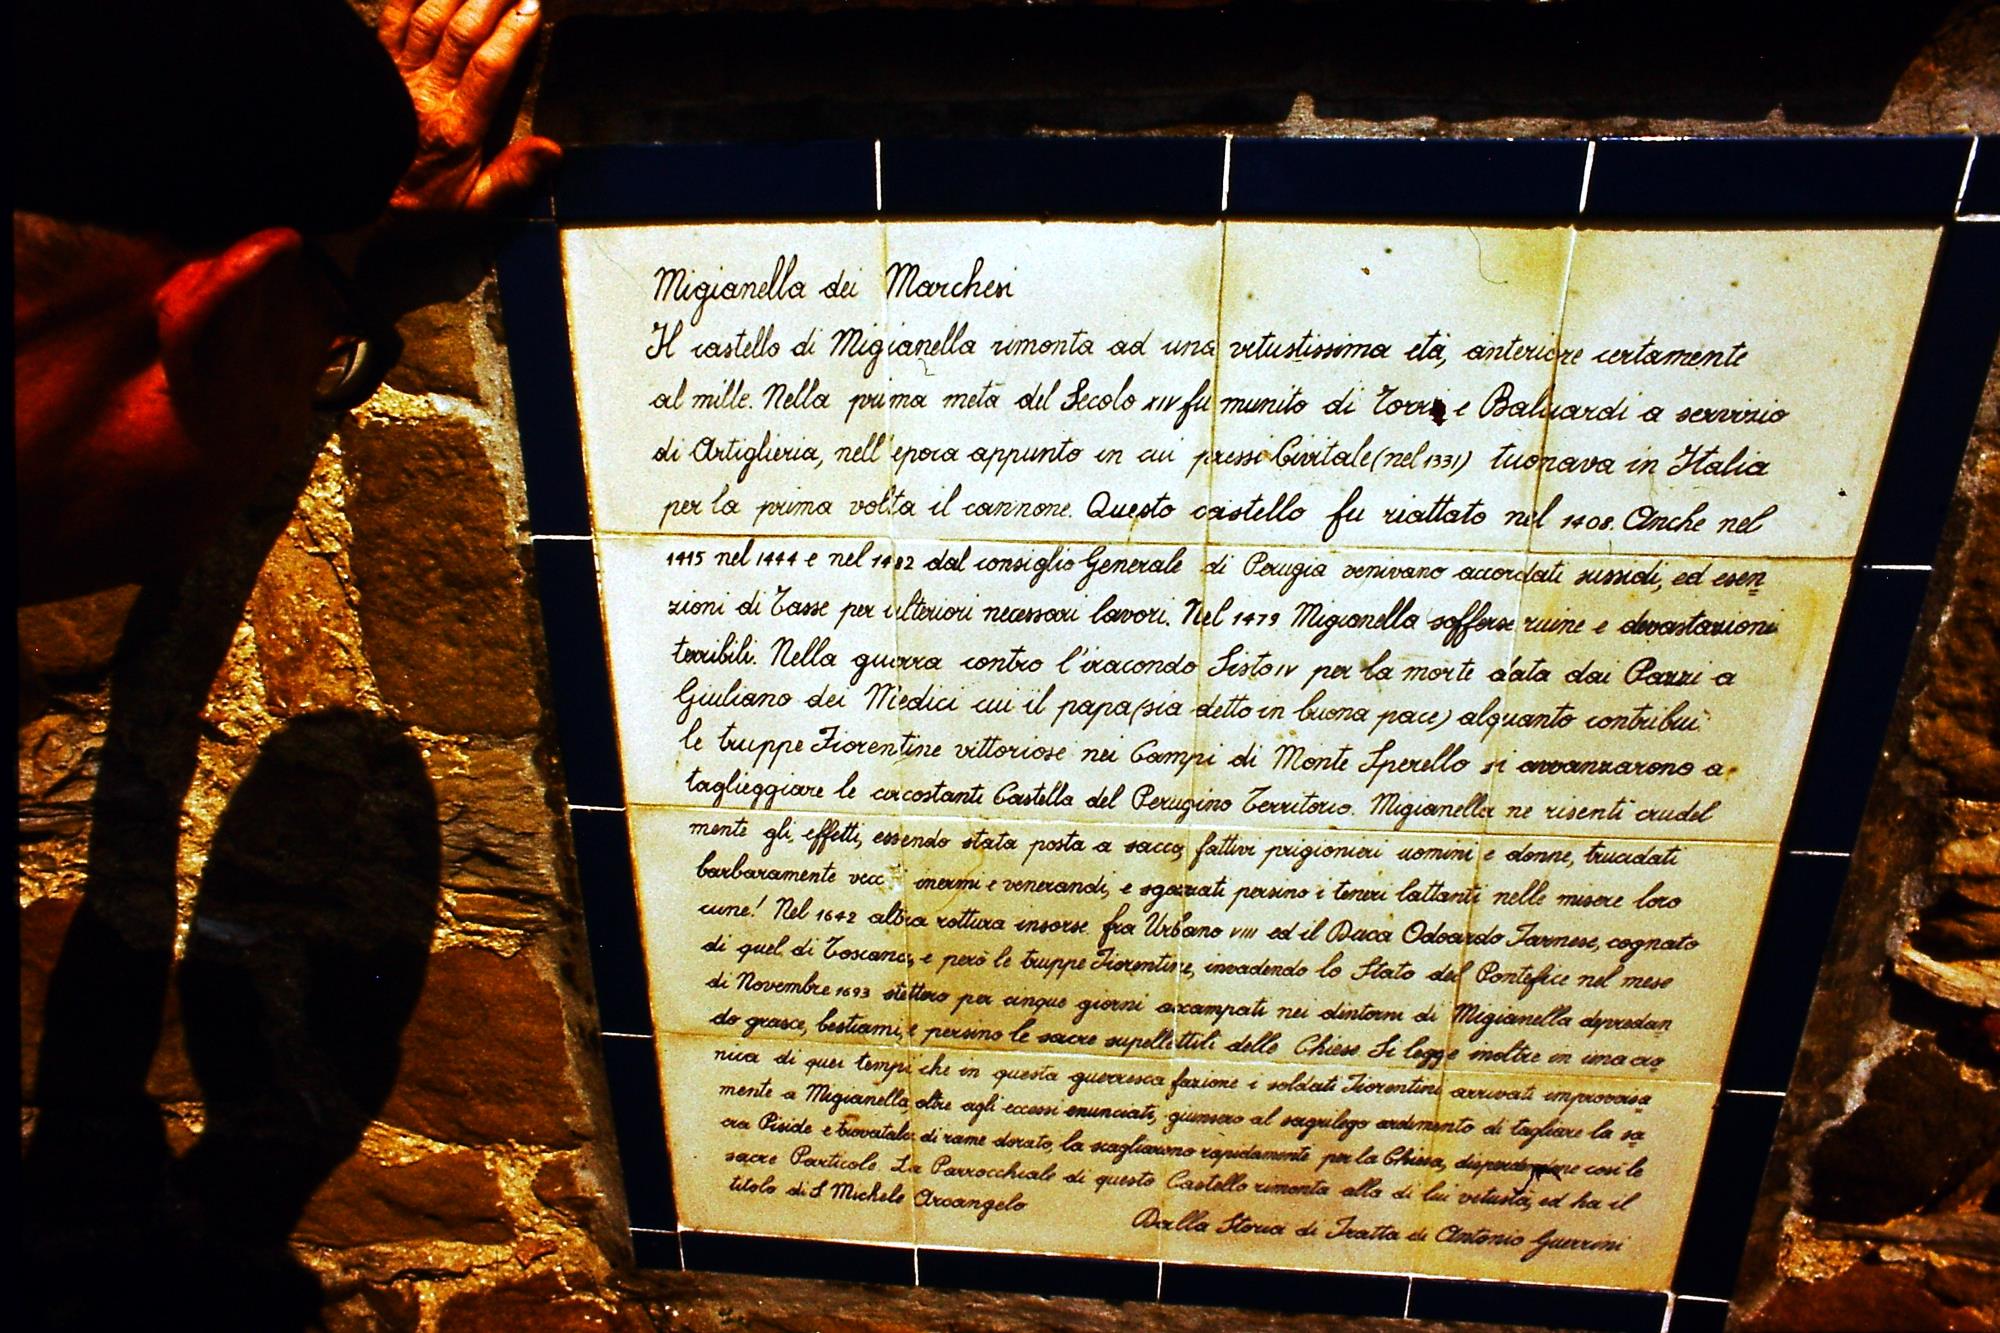 Migianella dei Marchesi
Il castello di Migianella rimonta ad una vetustissima età, anteriore certamente
al mille. Nella prima metà del Secolo XIV fu munito di Torri e Baluardi a servizio
di Artiglieria, nell'epoca appunto in cui pressi Civitale (nel 1331) tuonava in Italia
per la prima volta il cannone. Questo castello fu riattato nel 1408. Anche nel
1415 nel 1444 e nel 1482 dal consiglio Generale di Perugia venivano accordati sussidi, ed esen=
zioni di Tasse per ulteriori necessari lavori. Nel 1479 Migianella sofferse ruine e devastazioni
terribili. Nella guerra contro l'iracondo Sisto IV per la morte data dai Pazzi a
Giuliano dei Medici cui il papa (sia detto in buona pace) alquanto contribuì
le truppe Fiorentine vittoriose nei Campi di Monte Sperello si avvanzarono a
taglieggiare le circostanti Castella del Perugino Territorio. Migianella ne risentì crudel
mente gli effetti, essendo stata posta a sacco, fattivi prigionieri uomini e donne, trucidati
barbaramente inermi e venerandi, e sgozzati persino i teneri lattanti nelle misere loro
cune! Nel 1642 altra rottura insorse fra Urbano VIII ed il Duca Odoardo Farnese, cognato
di quel di Toscana, e però le truppe Fiorentine, invadendo lo Stato del Pontefice nel mese
di Novembre 1693 stettero per cinque giorni accampati nei dintorni di Migianella depredan
do grasce, bestiami, e persino le sacre supellettili delle Chiese. Si legge inoltre in una cro
nica di quei tempi che in questa guerresca fazione i soldati Fiorentini arrivati improvvisa=
mente a Migianella, oltre agli eccessi enunciati, giunsero al sagrilego ardimento di tagliare la sa=
cra Piside e trovatala di rame dorato, la scagliarono rapidamente per la Chiesa, disperdendone così le
sacre Particole. La Parrocchiale di questo Castello rimonta alla di lui vetustà, ed ha il
titolo di S Michele Arcangelo
Dalla Storia di Fratta di Antonio Guerrini